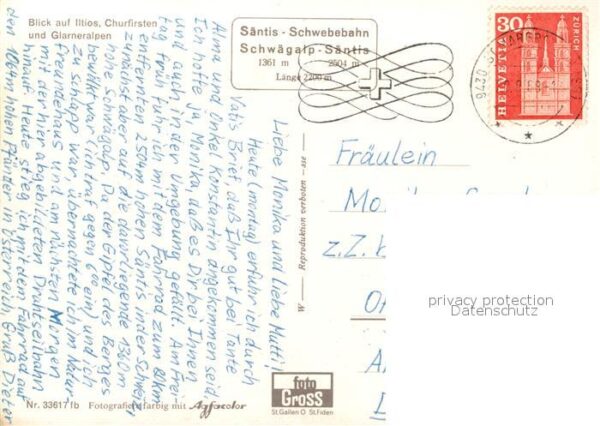 Blick auf Iltios, Churfirsten
und Glarneralpen
Säntis - Schwebebahn
Schwägalp - Säntis
1361 m 2504 m
Länge 2200 m
HELVETIA
30
ZÜRICH
9430 ST. MARGR
Liebe Monika und liebe Mutti!
Heute (Montag) erfuhr ich durch
Vatis Brief, daß Ihr gut bei Tante
Alma und Onkel Konstantin angekommen seid.
Ich hoffe ja, Monika, daß es Dir bei Ihnen
und auch in der Umgebung gefällt. Am Frei-
tag nun fuhr ich mit dem Fahrrad zum 80km
entfernten 2504m hohen Säntis in der Schweiz
zunächst aber auf die davorliegende 1360m
hohe Schwägalp. Da der Gipfel des Berges
bewölkt war (ich traf gegen 6.00 ein) und ich
zu schlapp war, übernachtete ich im Natur-
freundehaus und am nächsten Morgen
mit der hier abgebildeten Drahtseilbahn
hinauf. Heute stieg ich mit dem Fahrrad auf
den 1064m hohen Pfänder in Österreich. Gruß Dieter
W — Reproduktion verboten - sse —
Fräulein
z.Z.
privacy protection
Datenschutz
foto
GROSS
St.Gallen O St.Fiden
Nr. 33617 fb Fotografiert farbig mit Agfacolor